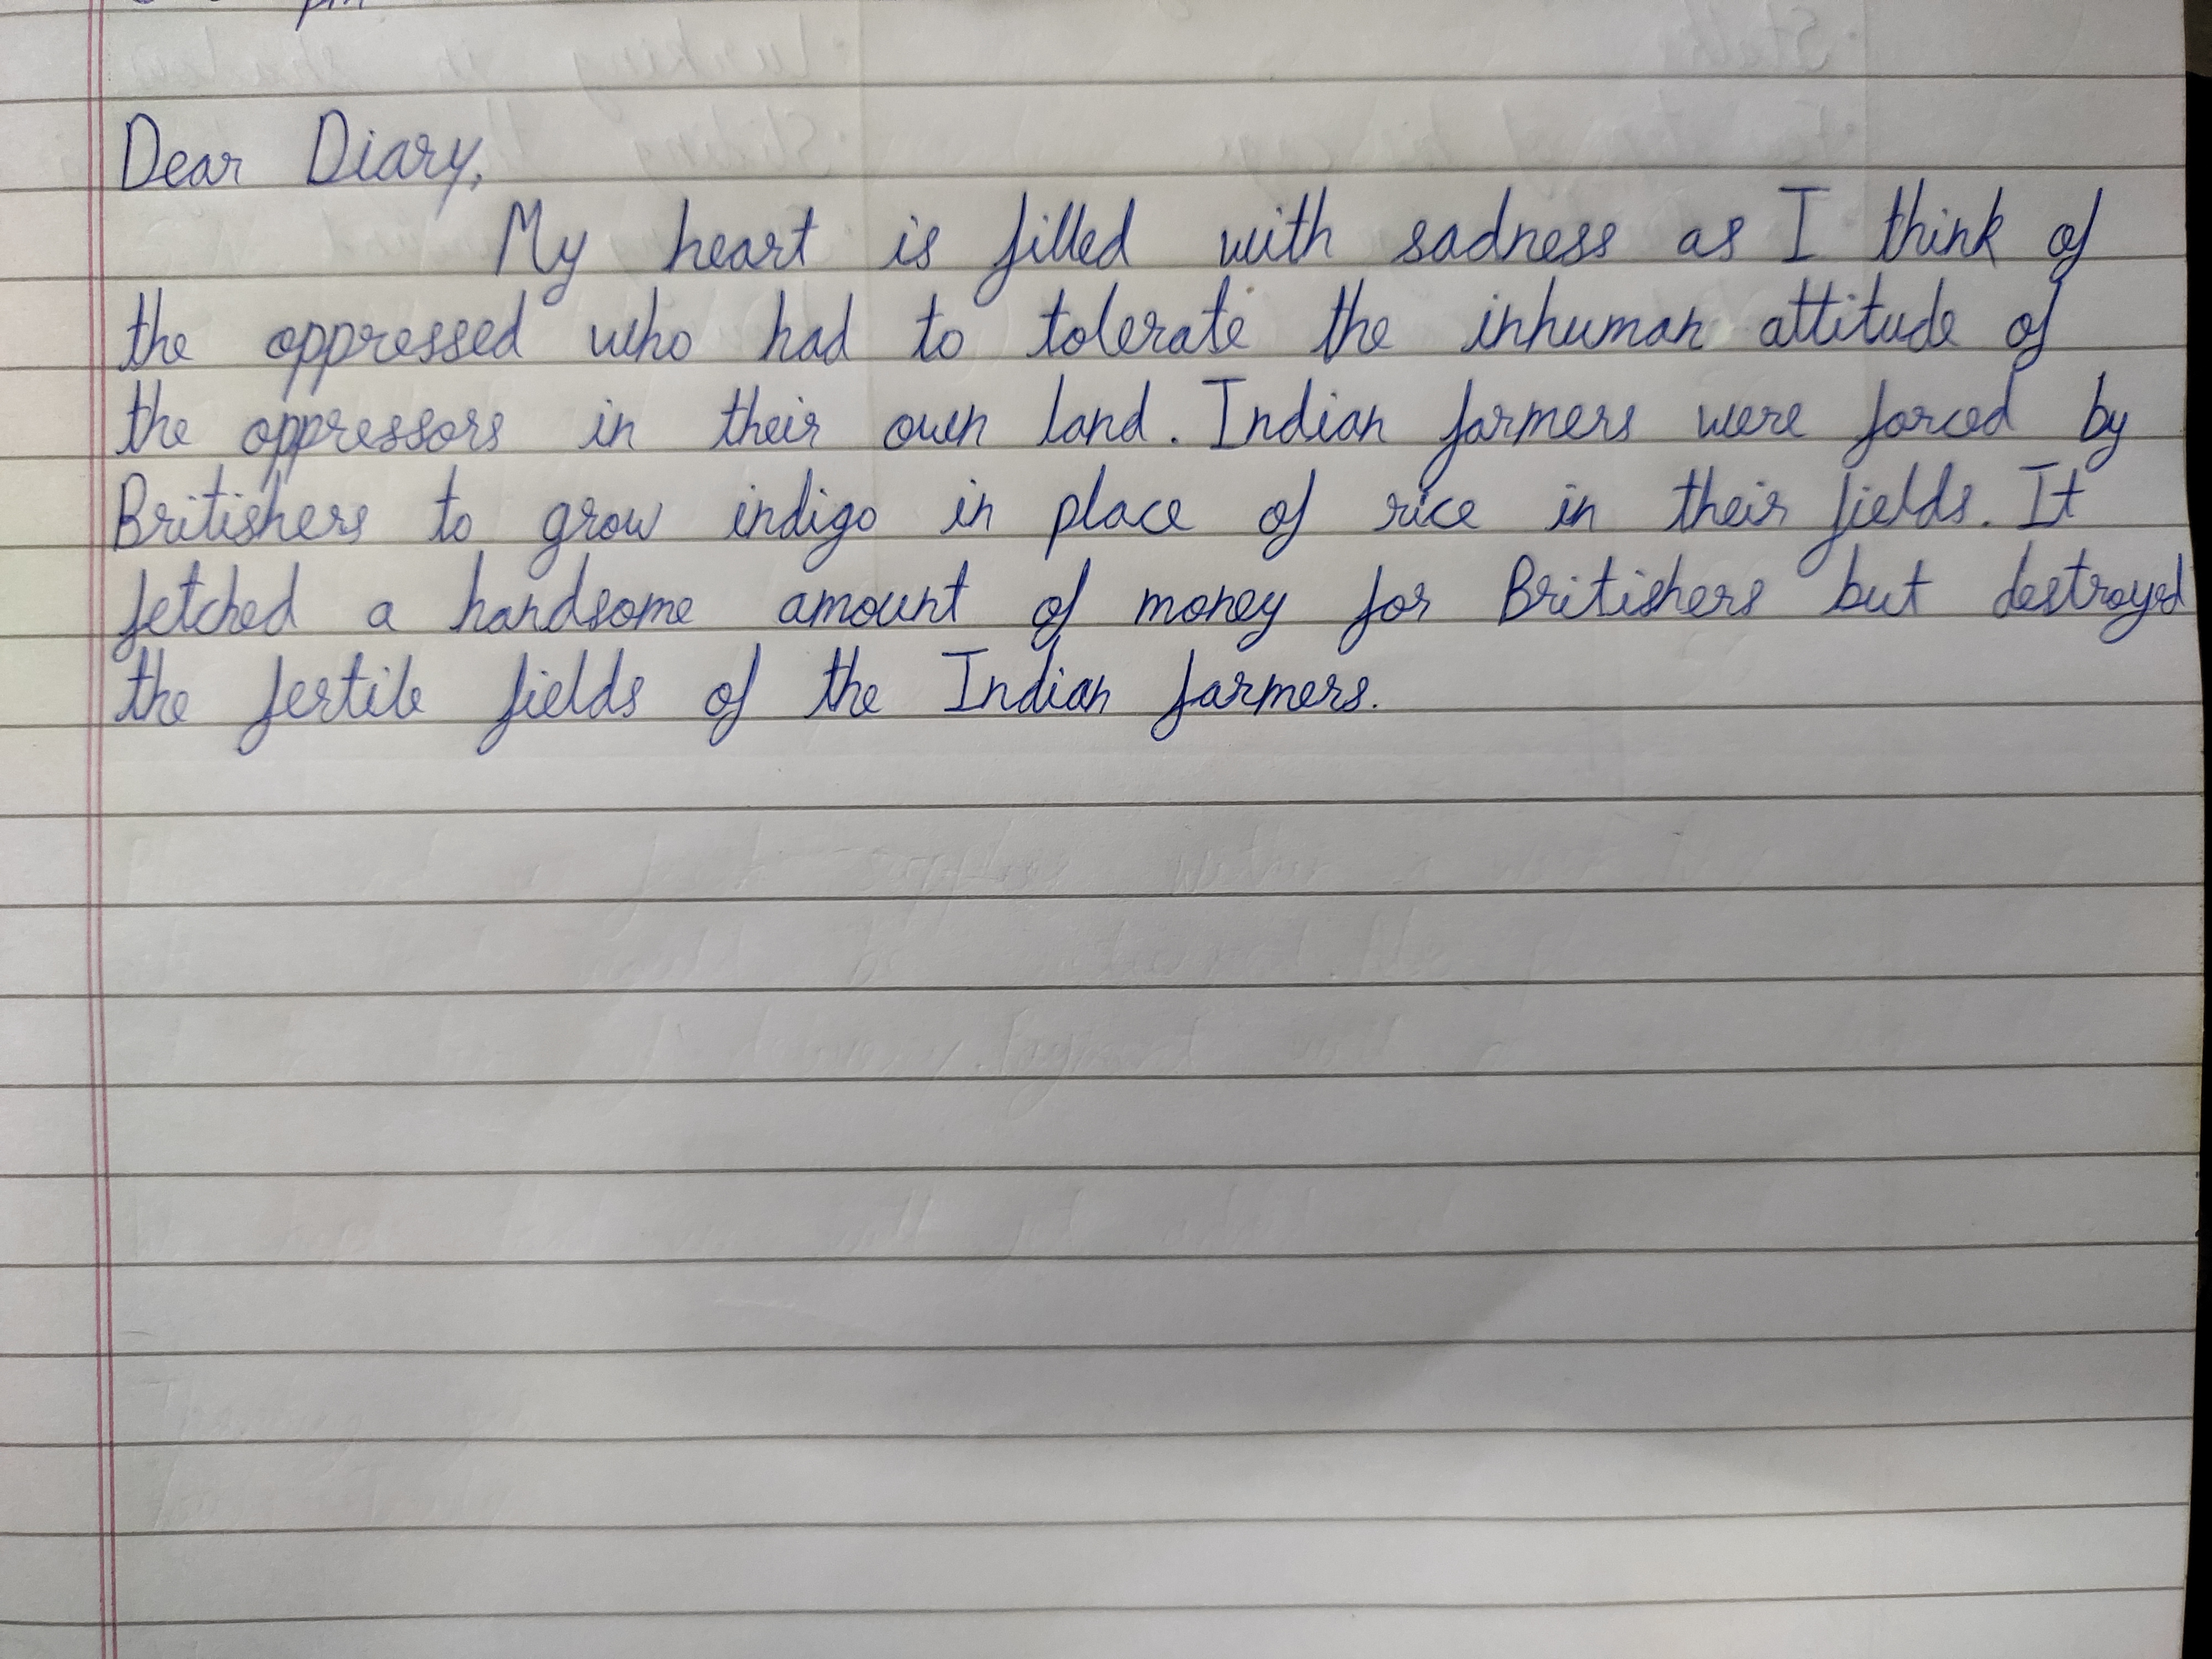 pm
Dear Diary,
My heart is filled with sadness as I think of
the oppressed who had to tolerate the inhuman attitude of
the oppressors in their own land. Indian farmers were forced by
Britishers to grow indigo in place of rice in their fields. It
fetched a handsome amount of money for Britishers but destroyed
the fertile fields of the Indian farmers.